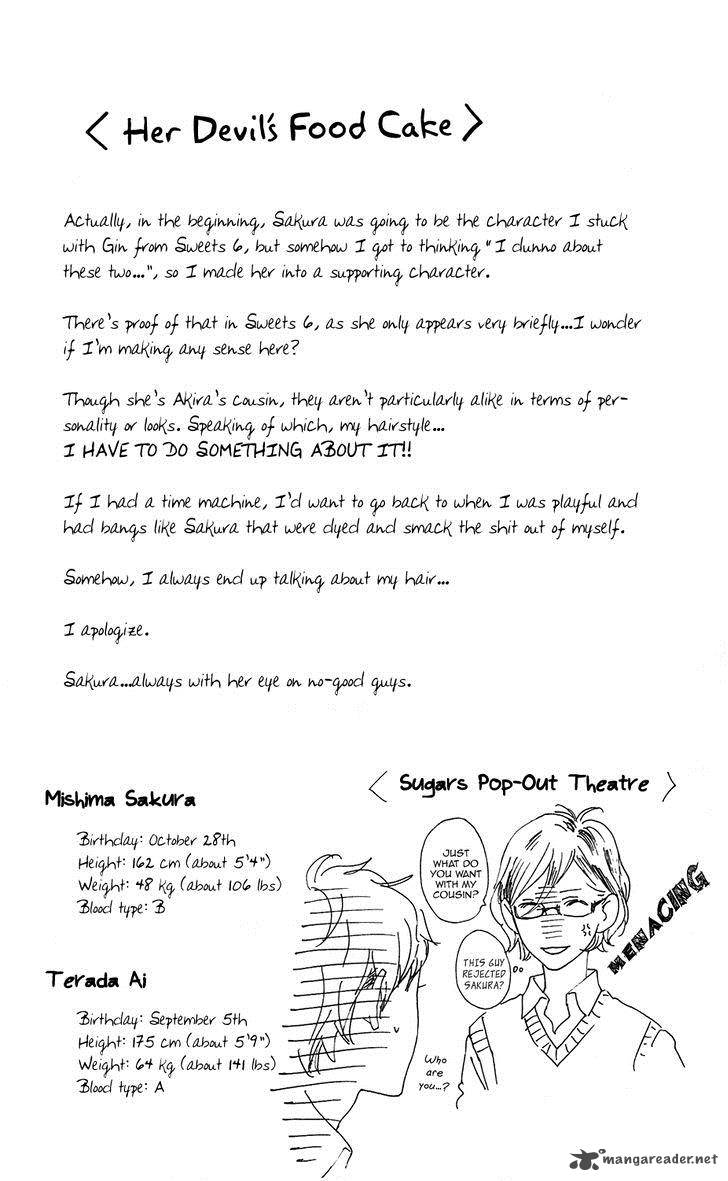 < Her Devil's Food Cake >
Actually, in the beginning, Sakura was going to be the character I stuck
with Gin from Sweets 6, but somehow I got to thinking "I dunno about
these two...", so I made her into a supporting character.
There's proof of that in Sweets 6, as she only appears very briefly...I wonder
if I'm making any sense here?
Though she's Akira's cousin, they aren't particularly alike in terms of per-
sonality or looks. Speaking of which, my hairstyle...
I HAVE TO DO SOMETHING ABOUT IT!!
If I had a time machine, I'd want to go back to when I was playful and
had bangs like Sakura that were dyed and smack the shit out of myself.
Somehow, I always end up talking about my hair...
I apologize.
Sakura...always with her eye on no-good guys.
Mishima Sakura
Birthday: October 28th
Height: 162 cm (about 5'4")
Weight: 48 kg (about 106 lbs)
Blood type: B
Terada Ai
Birthday: September 5th
Height: 175 cm (about 5'9")
Weight: 64 kg (about 141 lbs)
Blood type: A
< Sugars Pop-Out Theatre >
JUST
WHAT DO
YOU WANT
WITH MY
COUSIN?
MENACING
THIS GUY
REJECTED
SAKURA?
Who
are
you...?
mangareader.net